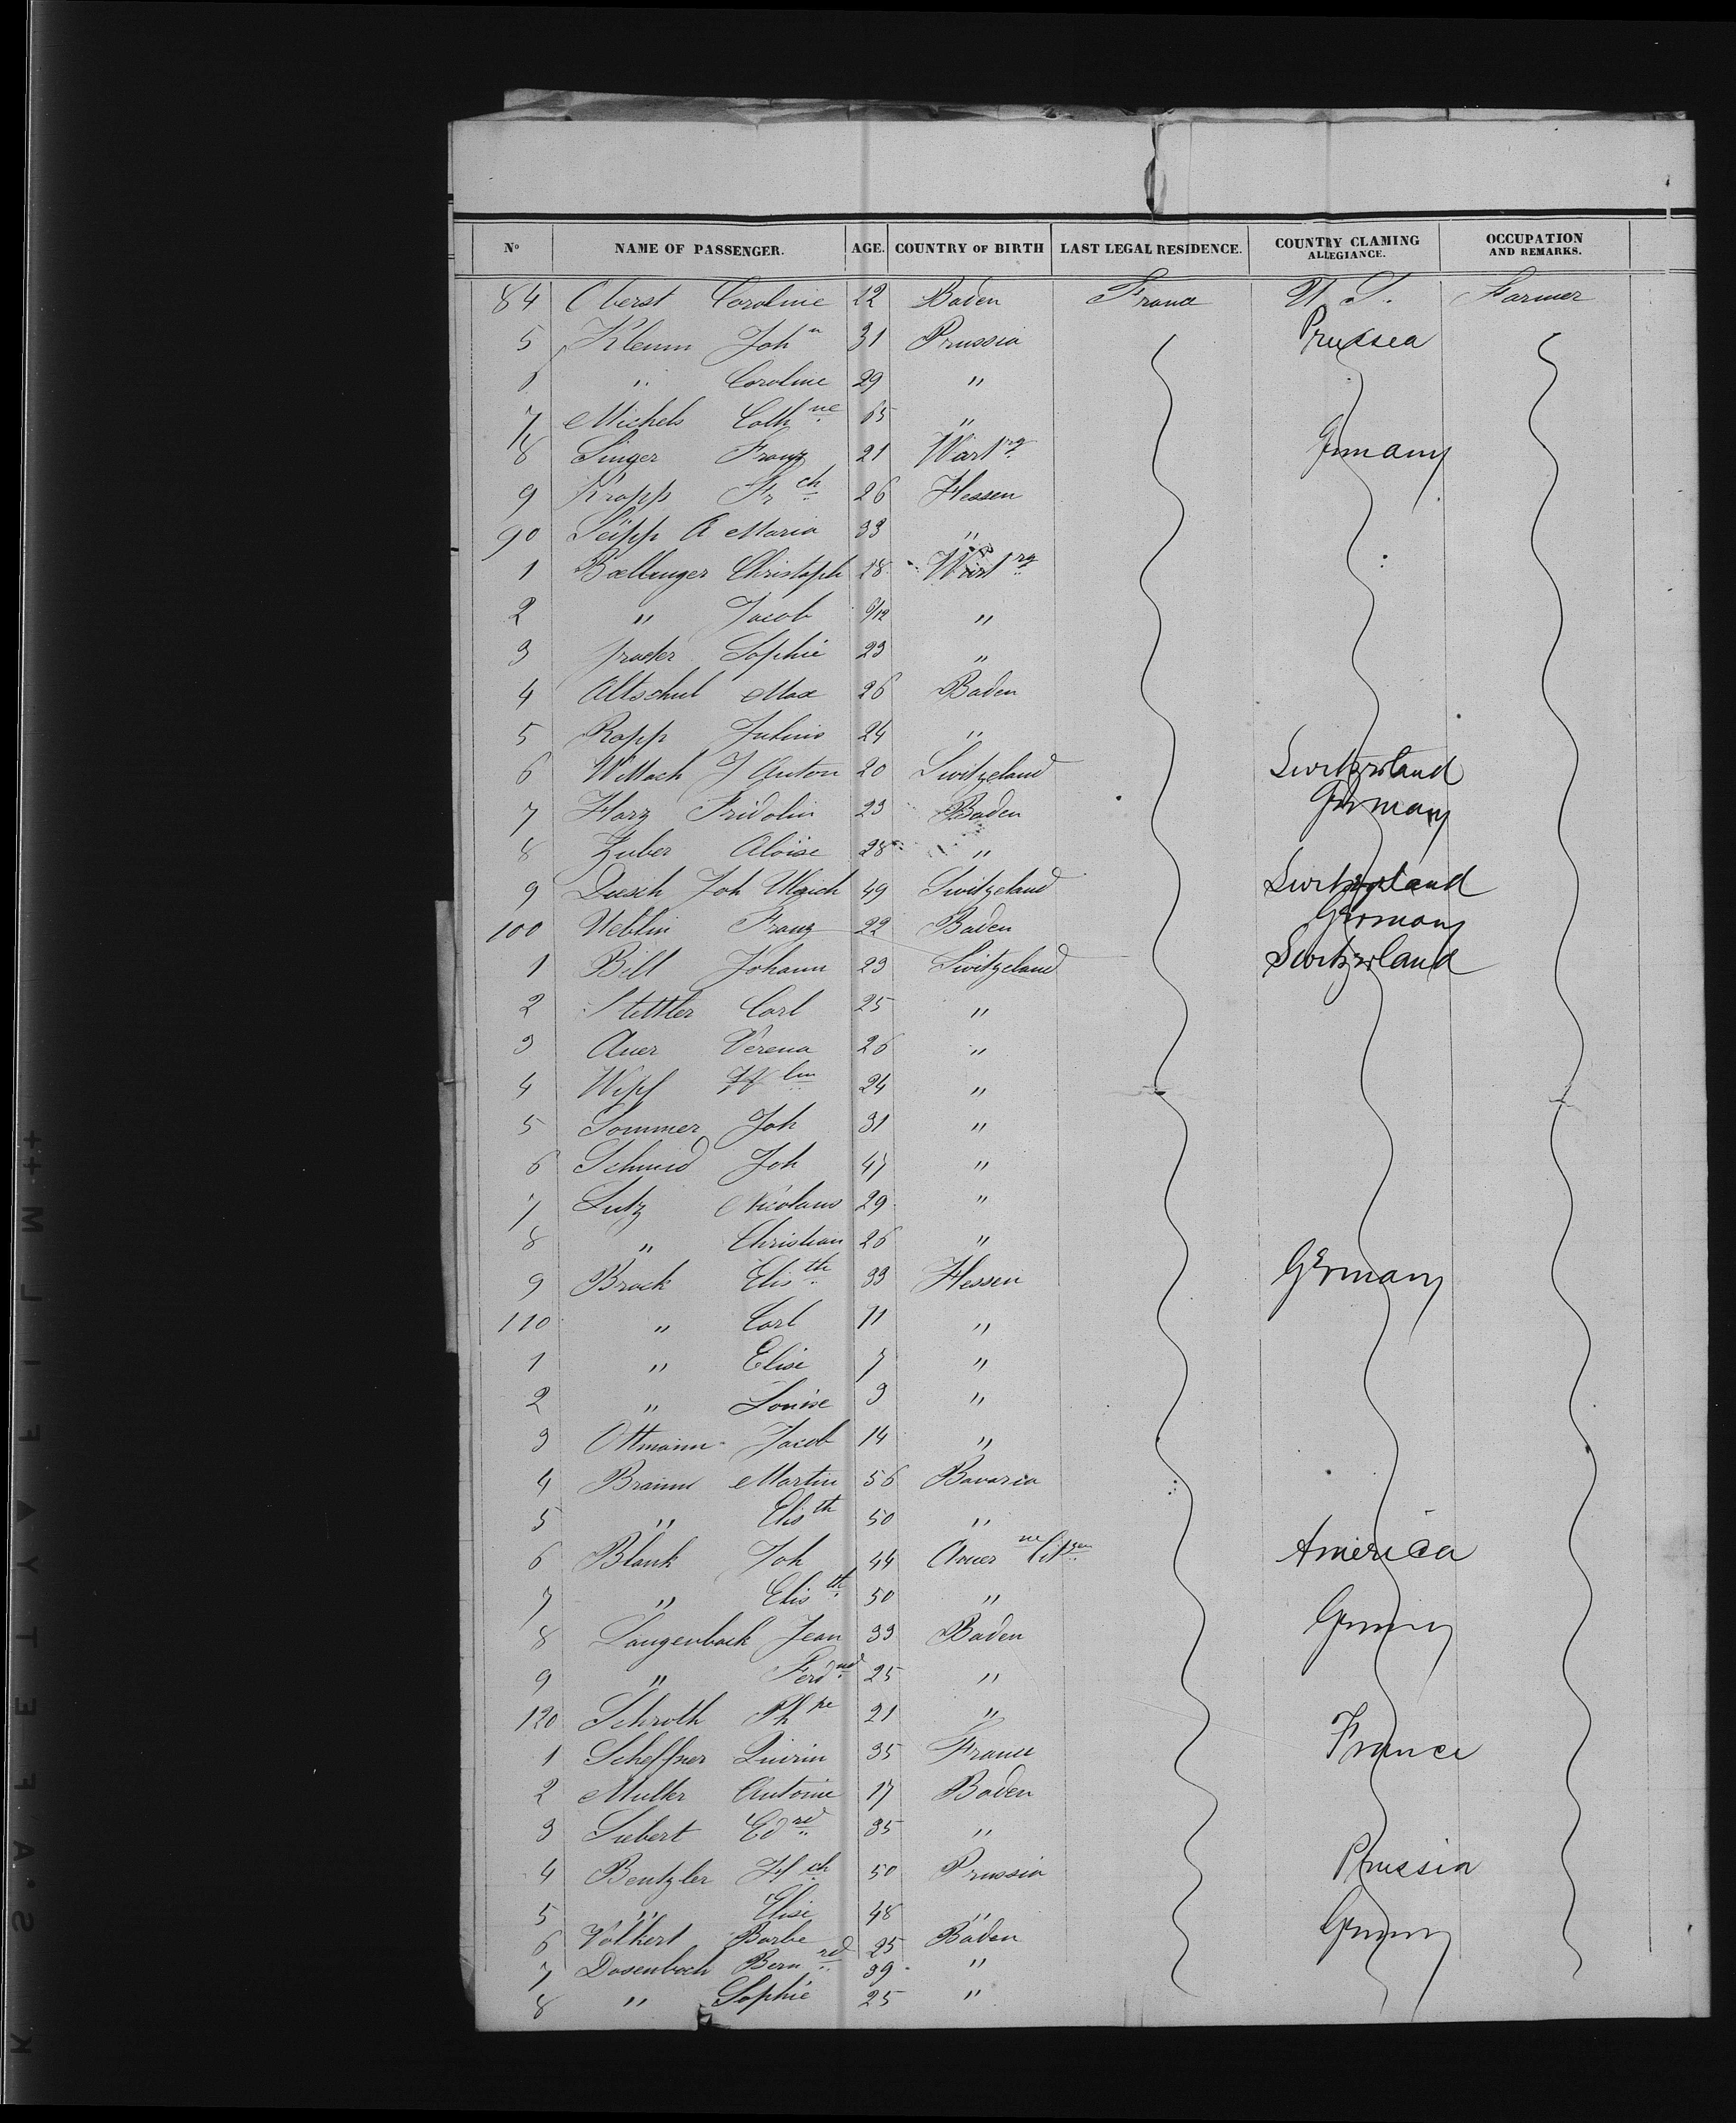 No NAME OF PASSENGER. AGE. COUNTRY OF BIRTH LAST LEGAL RESIDENCE. COUNTRY CLAMING ALLEGIANCE. OCCUPATION AND REMARKS.
84 Oberst Caroline 22 Baden France U S. Farmer
5 Klemm John 31 Prussia Prussea
6 " Caroline 29 "
7 Michels Cathne 65 "
8 Singer Franz 21 Wurtrg Germany
9 Krapp Frch 26 Hessen
90 Seipp A Maria 33 "
1 Bollinger Christoph 28 Wurtrg
2 " Jacob 6/12 "
3 Sophie 23 "
4 Altschul Max 26 Baden
5 Rapp Julius 24 "
6 J Anton 20 Switzeland Switzerland
7 Harz Fridolin 23 Baden Germany
8 Zuber Aloise 28 "
9 Joh Ulrich 49 Switzeland Switzerland
100 Franz 22 Baden Germany
1 Bill Johann 23 Switzeland Switzerland
2 Stettler Carl 25 "
3 Auer Verena 26 "
4 Wipf Wlm 24 "
5 Sommer Joh 31 "
6 Schmid Joh 47 "
7 Lutz Nicolaus 29 "
8 " Christian 26 "
9 Brock Elisth 33 Hessen Germany
110 " Carl 11 "
1 " Elise 7 "
2 " Louise 3 "
3 Ottmann Jacob 14 "
4 Braun Martin 56 Bavaria
5 " Elisth 50 "
6 Blank Joh 44 America
7 " Elisth 50 "
8 Langenbach Jean 33 Baden Germany
9 " Ferdnd 25 "
120 Schroth Phpe 21 "
1 Scheffner Quirin 35 France France
2 Muller Antoine 17 Baden
3 Siebert Edrd 35 "
4 Bentzler Hch 50 Prussia Prussia
5 " Elise 48 "
6 Volkert Barbe 25 Baden Germany
7 Dosenbach Bernrd 39 "
8 " Sophie 25 "